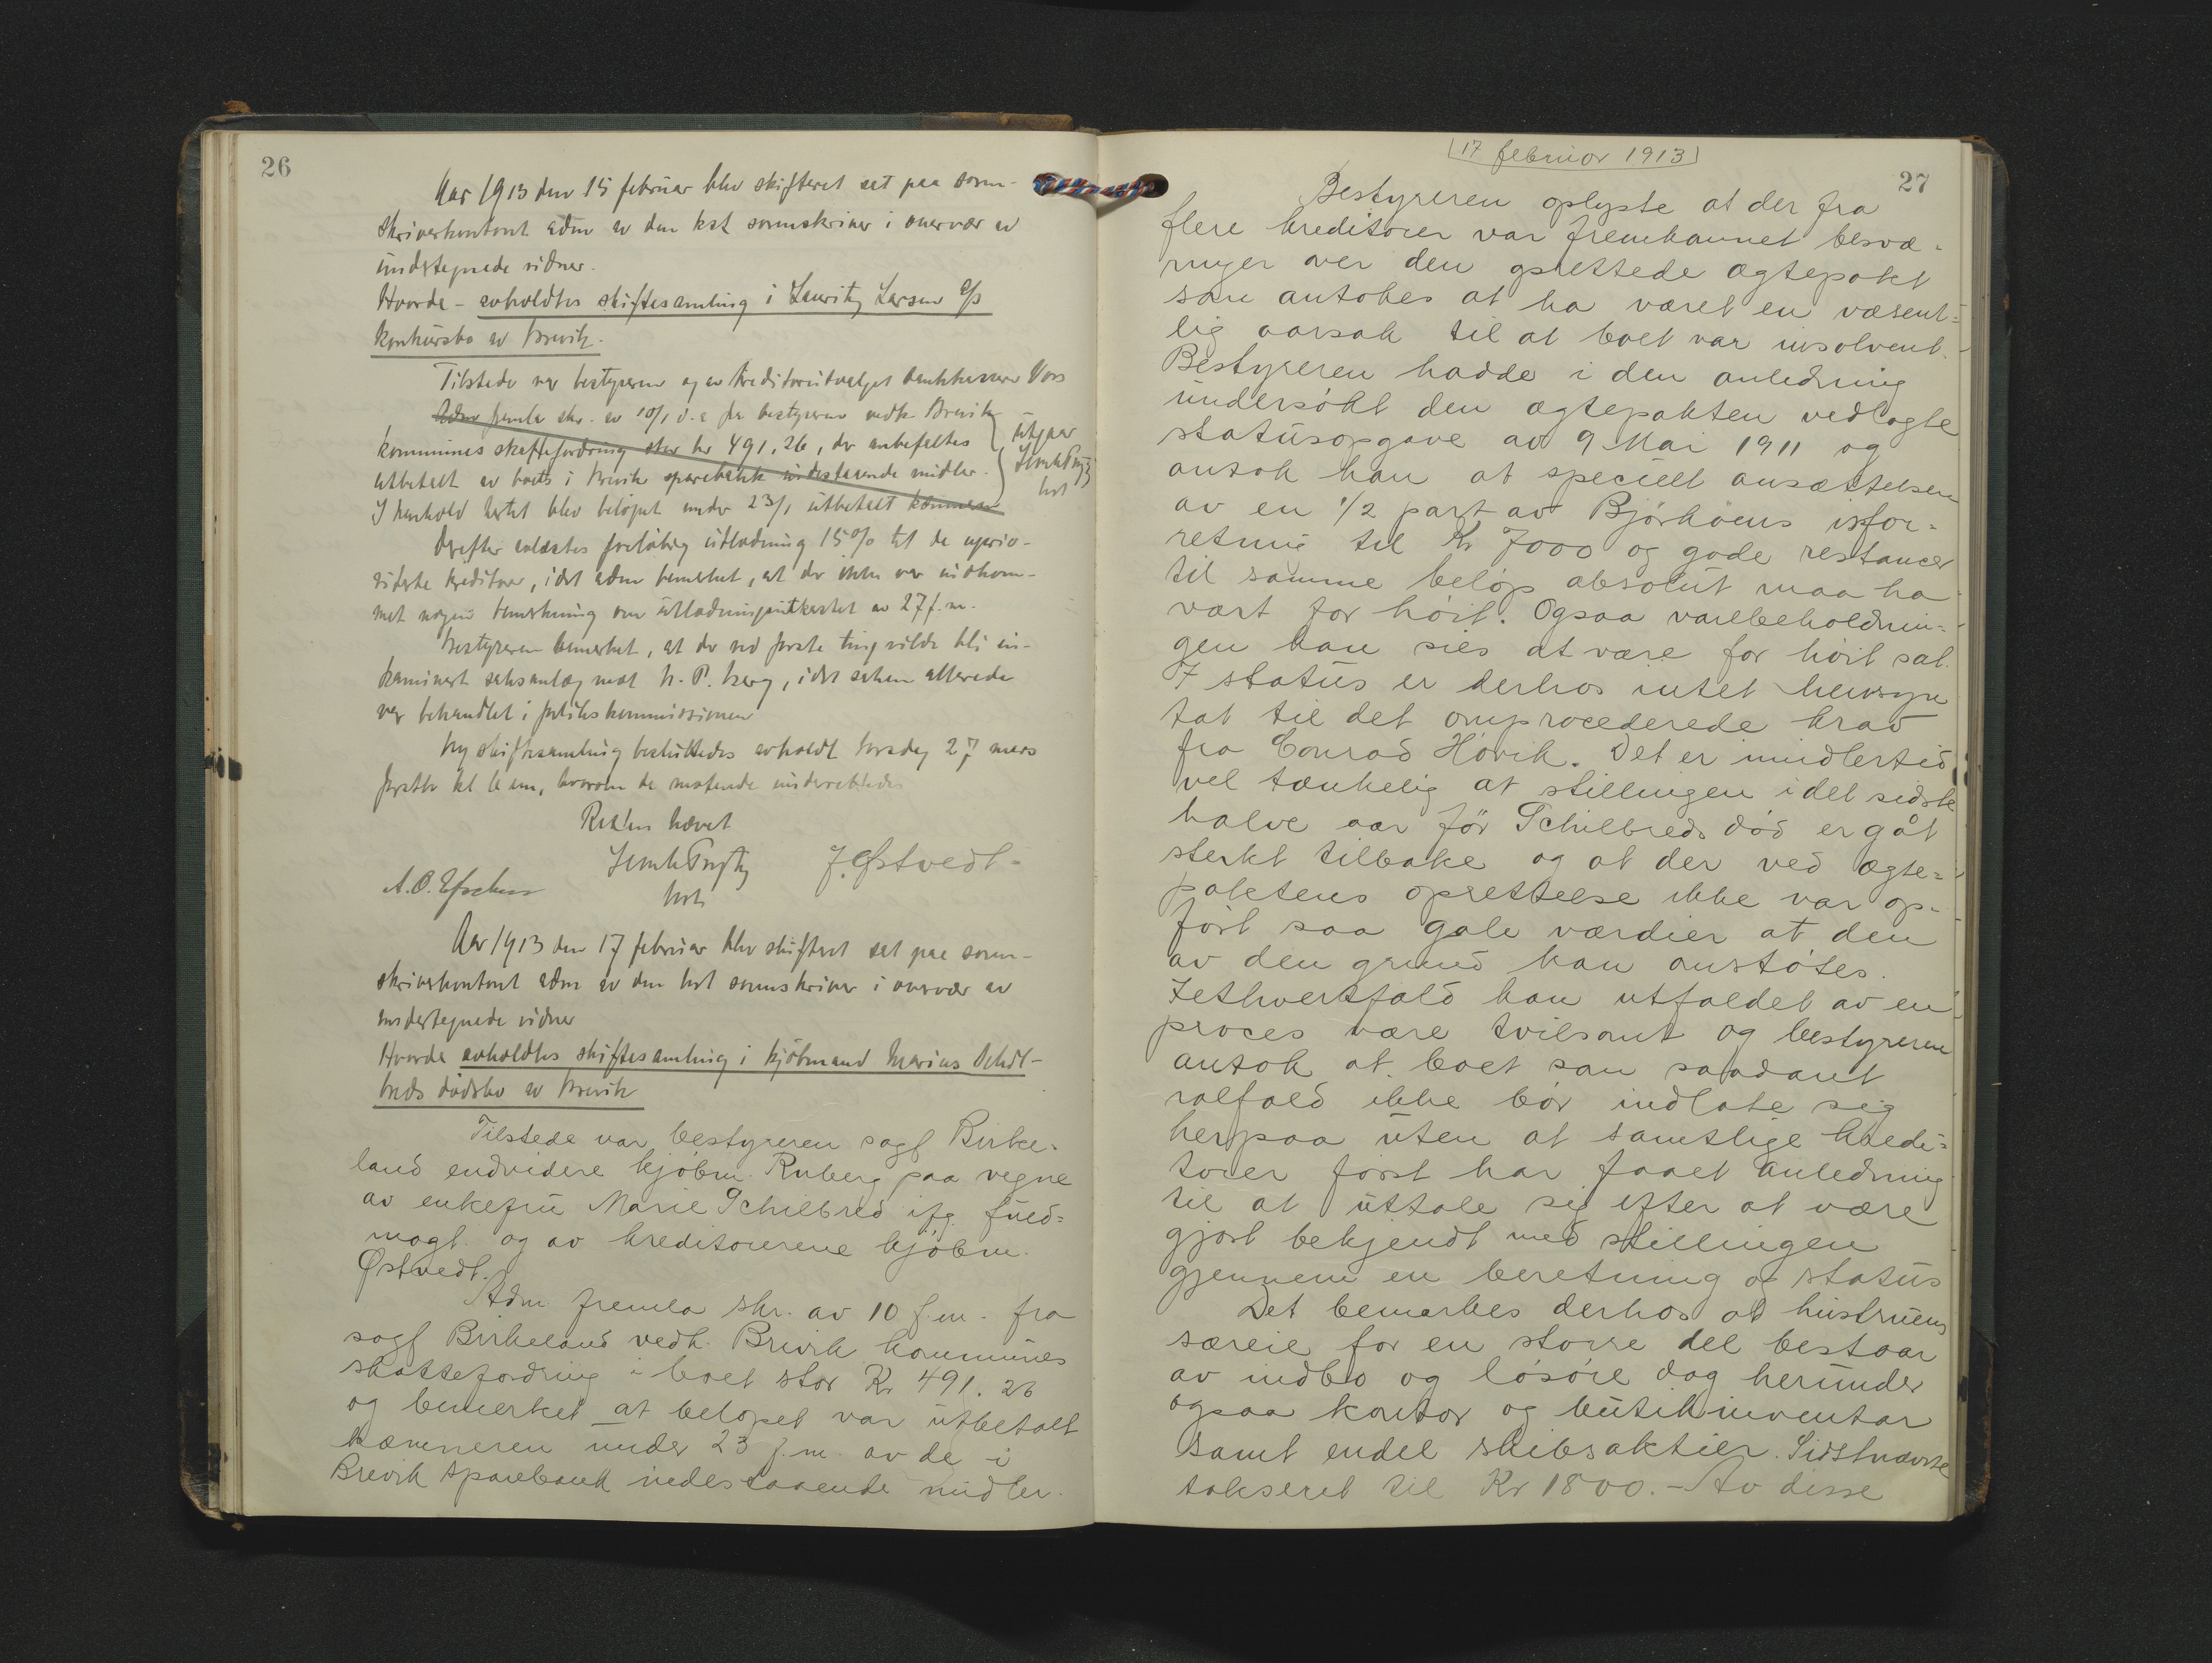 26
Aar 1913 den 15 februar blev skifteret sat paa soren-
skriverkontoret adm av den kst sorenskriver i overvær av
undertegnede vidner.
Hvorda - avholdtes skiftesamling i Lauritz Larsen
konkursbo av Brevik.
Tilstede var bestyreren og av kreditorutvalget bankkasserer Vors
Adm fremla skr. av 10/1 d.a fra bestyreren vedk. Brevik
kommunes skattefordring stor kr 491,26, der anbefaltes
utbetalt av boets i Brevik sparebank indestaaende midler.
I henhold hertil blev beløpet under 23/1 utbetalt kæmneren
utgaar
kst
Derefter vedtokes foreløbig utlodning 15% til de uprio-
riterte kreditorer, idet adm bemerket, at der ikke var indkom-
met nogen bemerkning om utlodningsutkastet av 27 f.m.
Bestyreren bemerket, at der ved første ting vilde bli in-
kaminert saksanlæg mot H. P. Berg, idet saken allerede
var behandlet i forlikskommissionen
Ny skiftesamling besluttedes avholdt torsdag 27 mars
førstk kl 6 em, hvorom de møtende underrettedes
Retten hævet
J. Østvedt-
A. O.
kst
Aar 1913 den 17 februar blev skifteret sat paa soren-
skriverkontoret adm av den kst sorenskriver i overvær av
undertegnede vidner
Hvorda avholdtes skiftesamling i kjøbmand Marius Schil-
breds dødsbo av Brevik
Tilstede var bestyreren sagf Birke-
land endvidere kjøbm. Ruberg paa vegne
av enkefru Marie Schilbred ifg. fuld=
magt. og av kreditorerene kjøbm.
Østvedt.
Adm fremla skr. av 10 f.m. fra
sagf Birkeland vedk. Brevik kommunes
skattefordring i boet stor Kr 491.26
og bemerket at beløpet var utbetalt
kæmneren under 23 f.m. av de i
Brevik Sparebank indestaaende midler.
17 februar 1913
27
Bestyreren oplyste at der fra
flere kreditorer var fremkommet besvæ-
ringer over den oprettede ægtepakt
som antokes at ha været en væsent=
lig aarsak til at boet var insolvent.
Bestyreren hadde i den anledning
undersøkt den ægtepakten vedlagte
statusopgave av 9 Mai 1911 og
antok han at specielt ansættelsen
av en 1/2 part av Bjørkøens isfor-
retning til Kr 7000 og gode restancer
til samme beløp absolut maa ha
vært for høit. Ogsaa varebeholdnin-
gen kan sies at være for høit sat.
I status er derhos intet hensyn
tat til det omprocederede krav
fra Conrad Høvik. Det er imidlertid
vel tænkelig at stillingen i det sidste
halve aar før Schilbreds død er gåt
sterkt tilbake og at der ved ægte=
paktens oprettelse ikke var op-
ført saa gale værdier at den
av den grund kan anstøtes.
Iethvertfald kan utfaldet av en
proces være tvilsomt og bestyreren
antok at boet som saadant
ialfald ikke bør indlate sig
herpaa uten at samtlige kredi=
torer først har faaet anledning
til at uttale sig efter at være
gjort bekjendt med stillingen
gjennem en beretning og status
Det bemærkes derhos at hustruens
særeie for en større del bestaar
av indbo og løsøre dog herunder
ogsaa kontor og butikinventar
samt endel skibsaktier. Sidstnævnte
takseret til Kr 1800.- Av disse